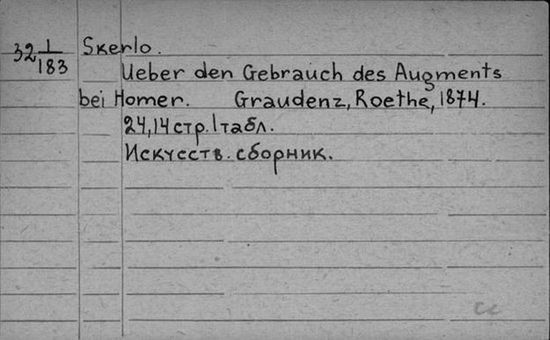 32 1/183 Skerlo.
Ueber den Gebrauch des Augments
bei Homer. Graudenz, Roethe, 1874.
24,14 стр. 1 табл.
Искусств. сборник.